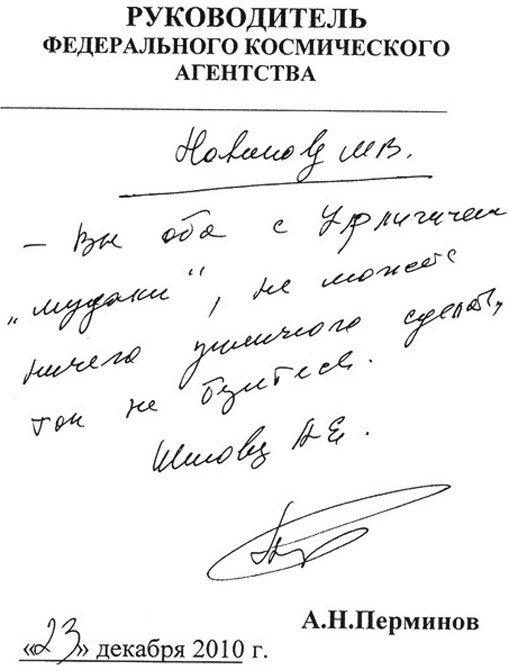 РУКОВОДИТЕЛЬ
ФЕДЕРАЛЬНОГО КОСМИЧЕСКОГО
АГЕНТСТВА
М.В.
– Вы оба с Урличичем
„мудаки“, не можете
ничего приличного сделать,
так не бултесь.
Шилову А.Е.
А.Н.Перминов
«23» декабря 2010 г.